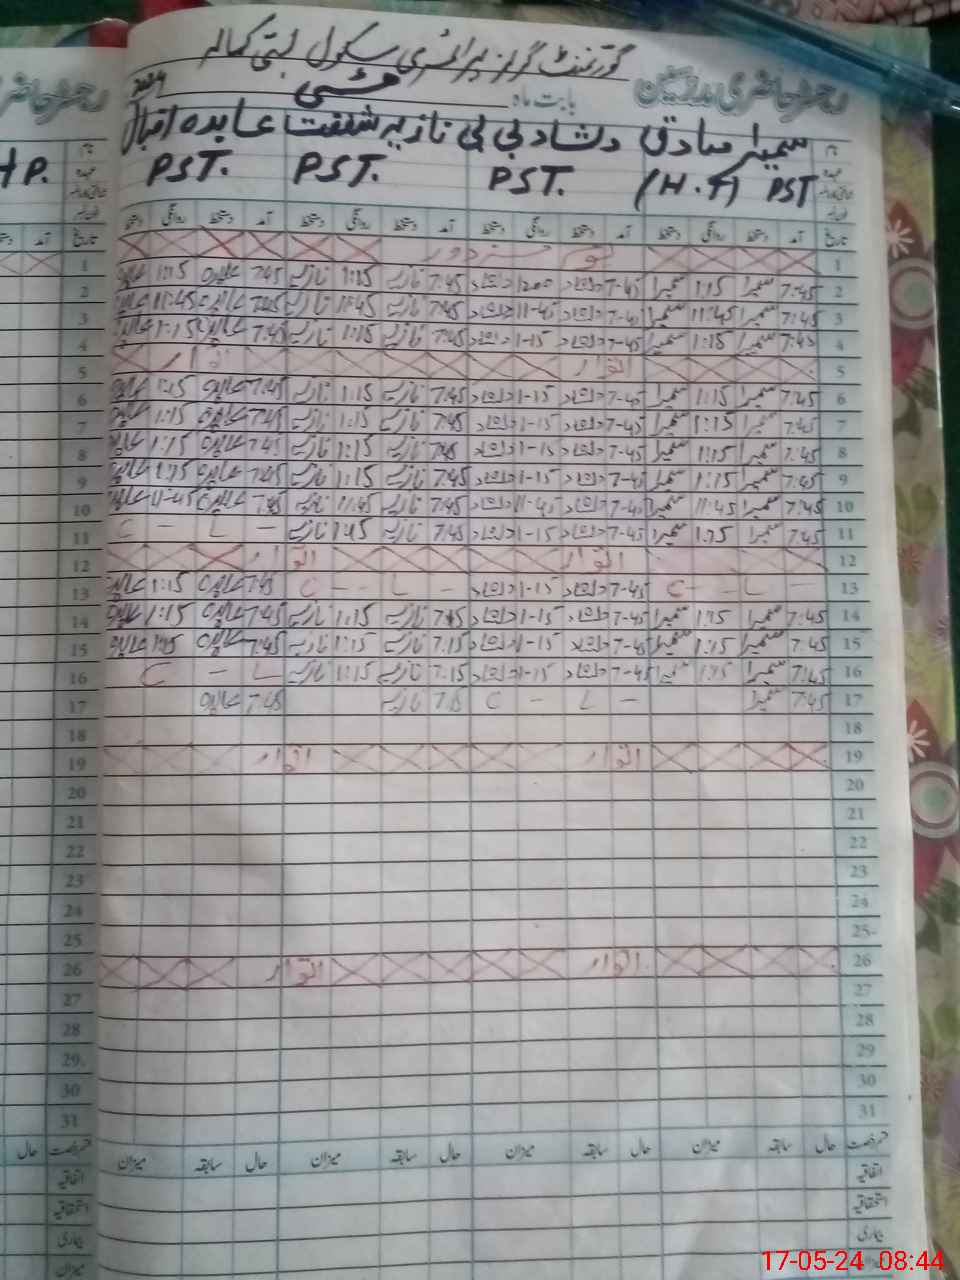 گورنمنٹ گرلز پرائمری سکول بستی کمالہ
رجسٹر حاضری مدرسین بابت ماہ مئی
سمیرا صادق دلشاد بی بی نازیہ شگفت عابدہ اقبال
PST (H.T) PST. PST. PST.
تاریخ آمد دستخط روانگی دستخط آمد دستخط روانگی دستخط آمد دستخط روانگی دستخط آمد دستخط روانگی دستخط
1
2 7:45 سمیرا 1:15 سمیرا 7-45 دلشاد 12:00 دلشاد 7:45 نازیہ 1:15 نازیہ 7:45 عابدہ 1:15 عابدہ
3 7:45 سمیرا 11:45 سمیرا 7-45 دلشاد 11-45 دلشاد 7:45 نازیہ 11:45 نازیہ 7:45 عابدہ 11:45 عابدہ
4 7:45 سمیرا 1:15 سمیرا 7-45 دلشاد 1-15 دلشاد 7:45 نازیہ 1:15 نازیہ 7:45 عابدہ 1:15 عابدہ
5 اتوار اتوار
6 7:45 سمیرا 1:15 سمیرا 7-45 دلشاد 1-15 دلشاد 7:45 نازیہ 1:15 نازیہ 7:45 عابدہ 1:15 عابدہ
7 7:45 سمیرا 1:15 سمیرا 7-45 دلشاد 1-15 دلشاد 7:45 نازیہ 1:15 نازیہ 7:45 عابدہ 1:15 عابدہ
8 7:45 سمیرا 1:15 سمیرا 7-45 دلشاد 1-15 دلشاد 7:45 نازیہ 1:15 نازیہ 7:45 عابدہ 1:15 عابدہ
9 7:45 سمیرا 1:15 سمیرا 7-45 دلشاد 1-15 دلشاد 7:45 نازیہ 1:15 نازیہ 7:45 عابدہ 1:15 عابدہ
10 7:45 سمیرا 11:45 سمیرا 7-45 دلشاد 11-45 دلشاد 7:45 نازیہ 11:45 نازیہ 7:45 عابدہ 11-45 عابدہ
11 7:45 سمیرا 1:15 سمیرا 7-45 دلشاد 1-15 دلشاد 7:45 نازیہ 1:15 نازیہ – L – C
12 اتوار اتوار
13 – L – C 7-45 دلشاد 1-15 دلشاد – L – C 7:45 عابدہ 1:15 عابدہ
14 7:45 سمیرا 1:15 سمیرا 7-45 دلشاد 1-15 دلشاد 7:45 نازیہ 1:15 نازیہ 7:45 عابدہ 1:15 عابدہ
15 7:45 سمیرا 1:15 سمیرا 7-45 دلشاد 1-15 دلشاد 7:15 نازیہ 1:15 نازیہ 7:45 عابدہ 1:15 عابدہ
16 7:45 سمیرا 1:15 سمیرا 7-45 دلشاد 1-15 دلشاد 7:15 نازیہ 1:15 نازیہ L – C
17 7:45 سمیرا – L – C نازیہ 7:45 عابدہ
18
19 اتوار اتوار
20
21
22
23
24
25
26 اتوار اتوار
27
28
29
30
31
قسم رخصت حال سابقہ میزان حال سابقہ میزان حال سابقہ میزان حال سابقہ میزان
اتفاقیہ
استحقاقیہ
بیماری
میزان
17-05-24 08:44